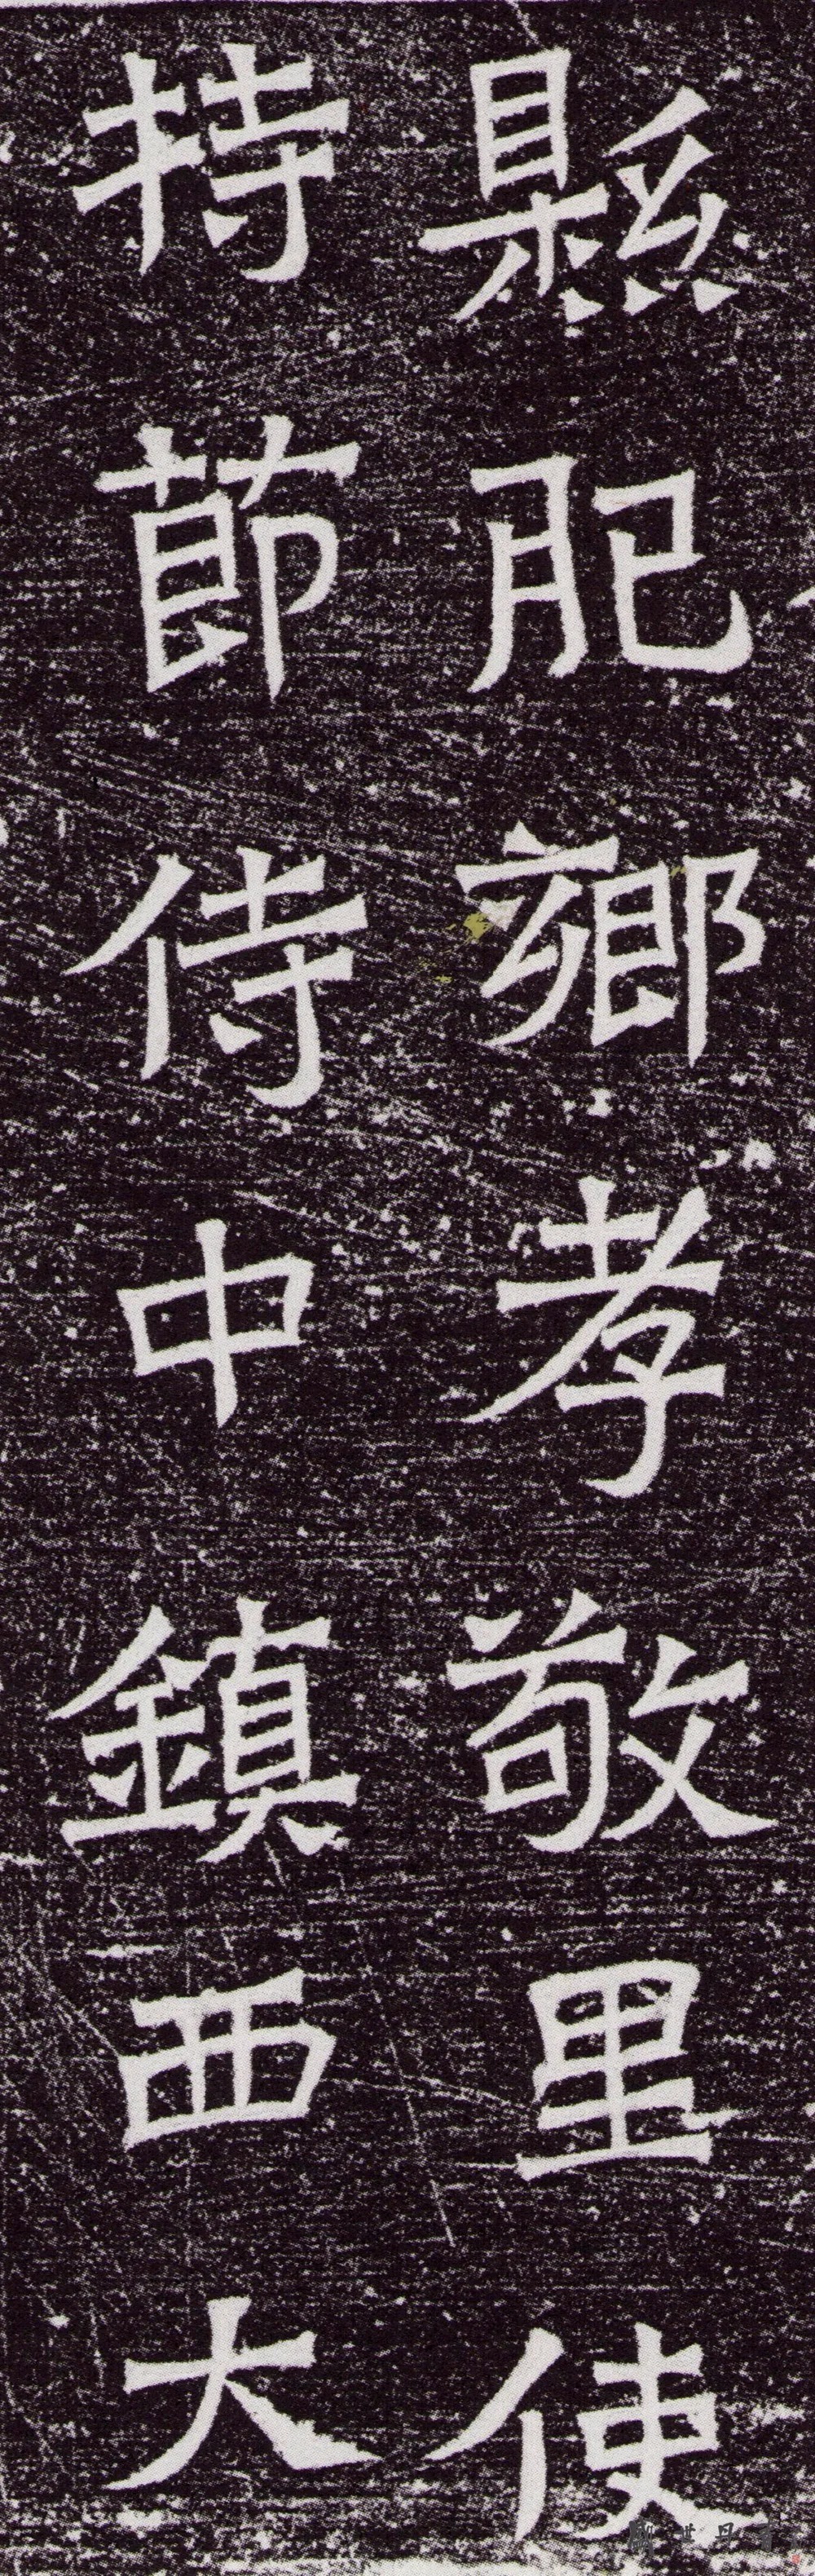 縣肥鄉孝敬里使
持節侍中鎮西大